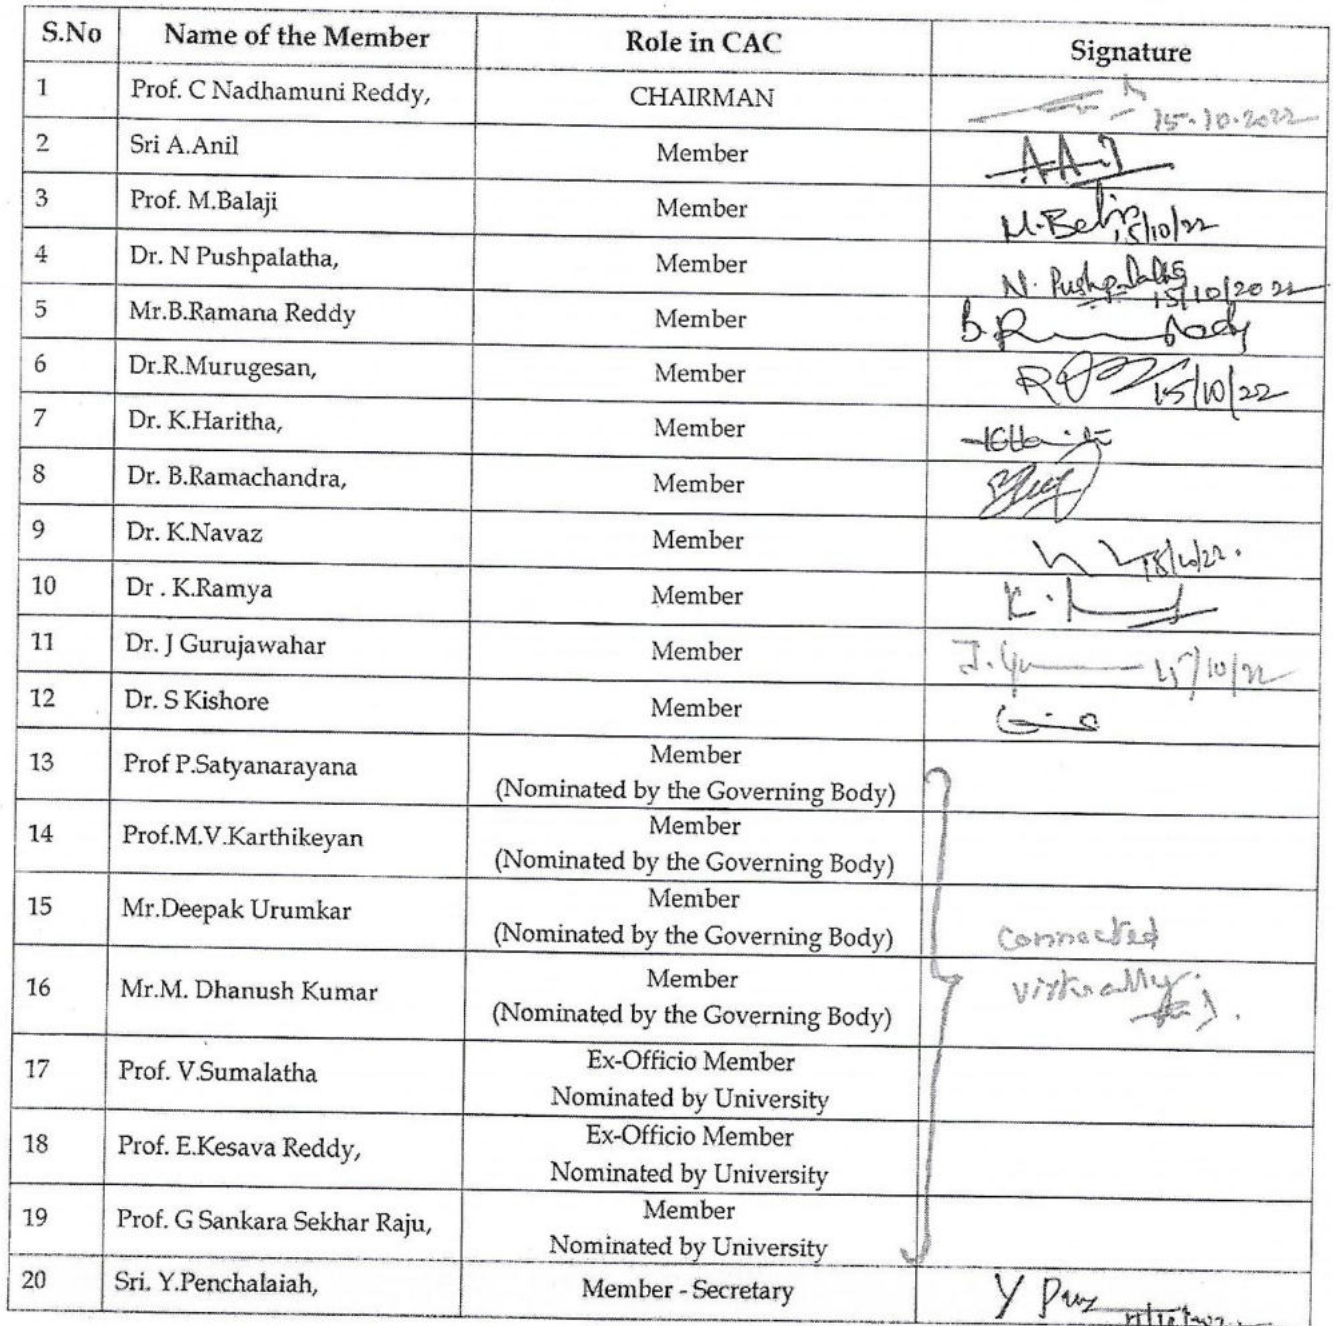 S.No Name of the Member Role in CAC Signature
1 Prof. C Nadhamuni Reddy, CHAIRMAN
15-10-2022
2 Sri A.Anil Member
3 Prof. M.Balaji Member
15/10/22
4 Dr. N Pushpalatha, Member N. Pushpalatha
15/10/2022
5 Mr.B.Ramana Reddy Member
6 Dr.R.Murugesan, Member 15/10/22
7 Dr. K.Haritha, Member
8 Dr. B.Ramachandra, Member
9 Dr. K.Navaz Member
10 Dr . K.Ramya Member
11 Dr. J Gurujawahar Member 15/10/22
12 Dr. S Kishore Member
13 Prof P.Satyanarayana Member
(Nominated by the Governing Body)
14 Prof.M.V.Karthikeyan Member
(Nominated by the Governing Body)
15 Mr.Deepak Urumkar Member
(Nominated by the Governing Body) Connected
16 Mr.M. Dhanush Kumar Member virtually.
(Nominated by the Governing Body)
17 Prof. V.Sumalatha Ex-Officio Member
Nominated by University
18 Prof. E.Kesava Reddy, Ex-Officio Member
Nominated by University
19 Prof. G Sankara Sekhar Raju, Member
Nominated by University
20 Sri. Y.Penchalaiah, Member - Secretary